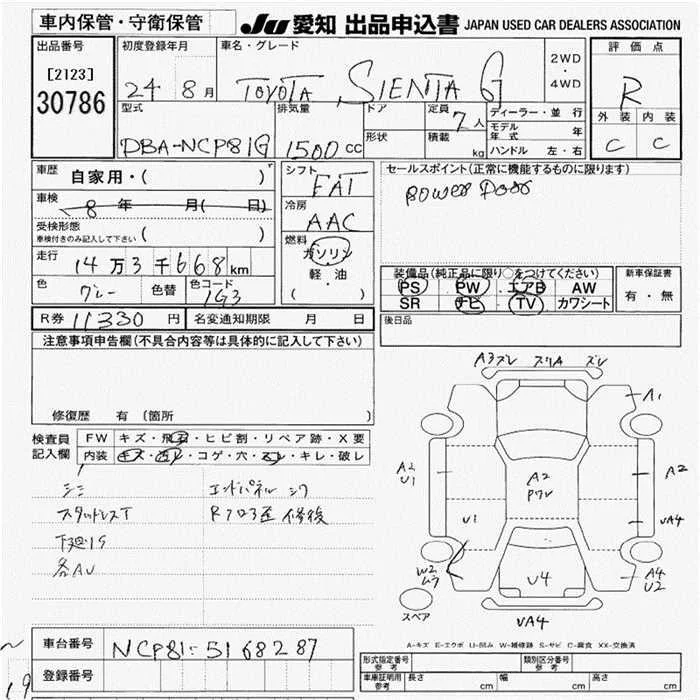 車内保管・守衛保管 JU 愛知 出品申込書 JAPAN USED CAR DEALERS ASSOCIATION
出品番号 初度登録年月 車名・グレード 評価点
[2123] 24 8月 TOYOTA SIENTA G 2WD・4WD R
30786 型式 排気量 ドア 定員 7人 ディーラー・並行 外装 内装
形状 積載 kg モデル年式 年 C C
DBA-NCP81G 1500cc ハンドル 左・右
車歴 自家用・( ) シフト FAT セールスポイント(正常に機能するものに限ります)
車検 8年 月( 日) 冷房 AAC POWER DOOR
受検形態 ( )
車検付きのみ記入して下さい
燃料 ガソリン
走行 14万3千668km 軽・油
色 グレー 色替 色コード 1G3 ( )
装備品(純正品に限り○をつけてください) 新車保証書
PS PW エアB AW 有・無
SR ナビ TV カワシート
R券 11330円 名変通知期限 月 日 後日品
注意事項申告欄(不具合内容等は具体的に記入して下さい)
修復歴 有(箇所
検査員記入欄 FW キズ・飛石・ヒビ割・リペア跡・X要
内装 キズ・汚レ・コゲ・穴・スレ・キレ・破レ
シミ エンドパネル シワ
スタッドレスT Rフロア歪 修後
下廻りS
各AU
A3ズレ スリA ズレ
A1
A2
U1
A2
Pワレ
A2
U1
UA4
W2
ムラ
U4
A4
U2
スペア
UA4
A-キズ E-エクボ U-凹み W-補修跡 S-サビ C-腐食 XX-交換済
車台番号 NCP81-5168287
登録番号
形式指定番号 参考 類別区分番号 参考
車庫証明用 参考 長さ cm 幅 cm 高さ cm